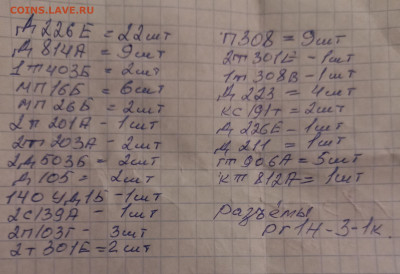 COINS.LAVE.RU
Д226Е = 22шт
Д814А = 9шт
1т403Б = 2шт
МП16Б = 6шт
МП26Б = 2шт
2т201А - 1шт
2т203А - 2шт
2Д503Б = 2шт
Д105 = 2шт
140УД1Б - 1шт
2С139А - 1шт
2П103Г - 3шт
2т301Е = 2шт
П308 = 9шт
2т301Е - 1шт
1т308В - 1шт
Д223 = 4шт
КС191т = 2шт
Д226Е - 1шт
Д211 = 1шт
гт906А = 5шт
КТ812А = 1шт
разъёмы
рг1Н-3-1к.